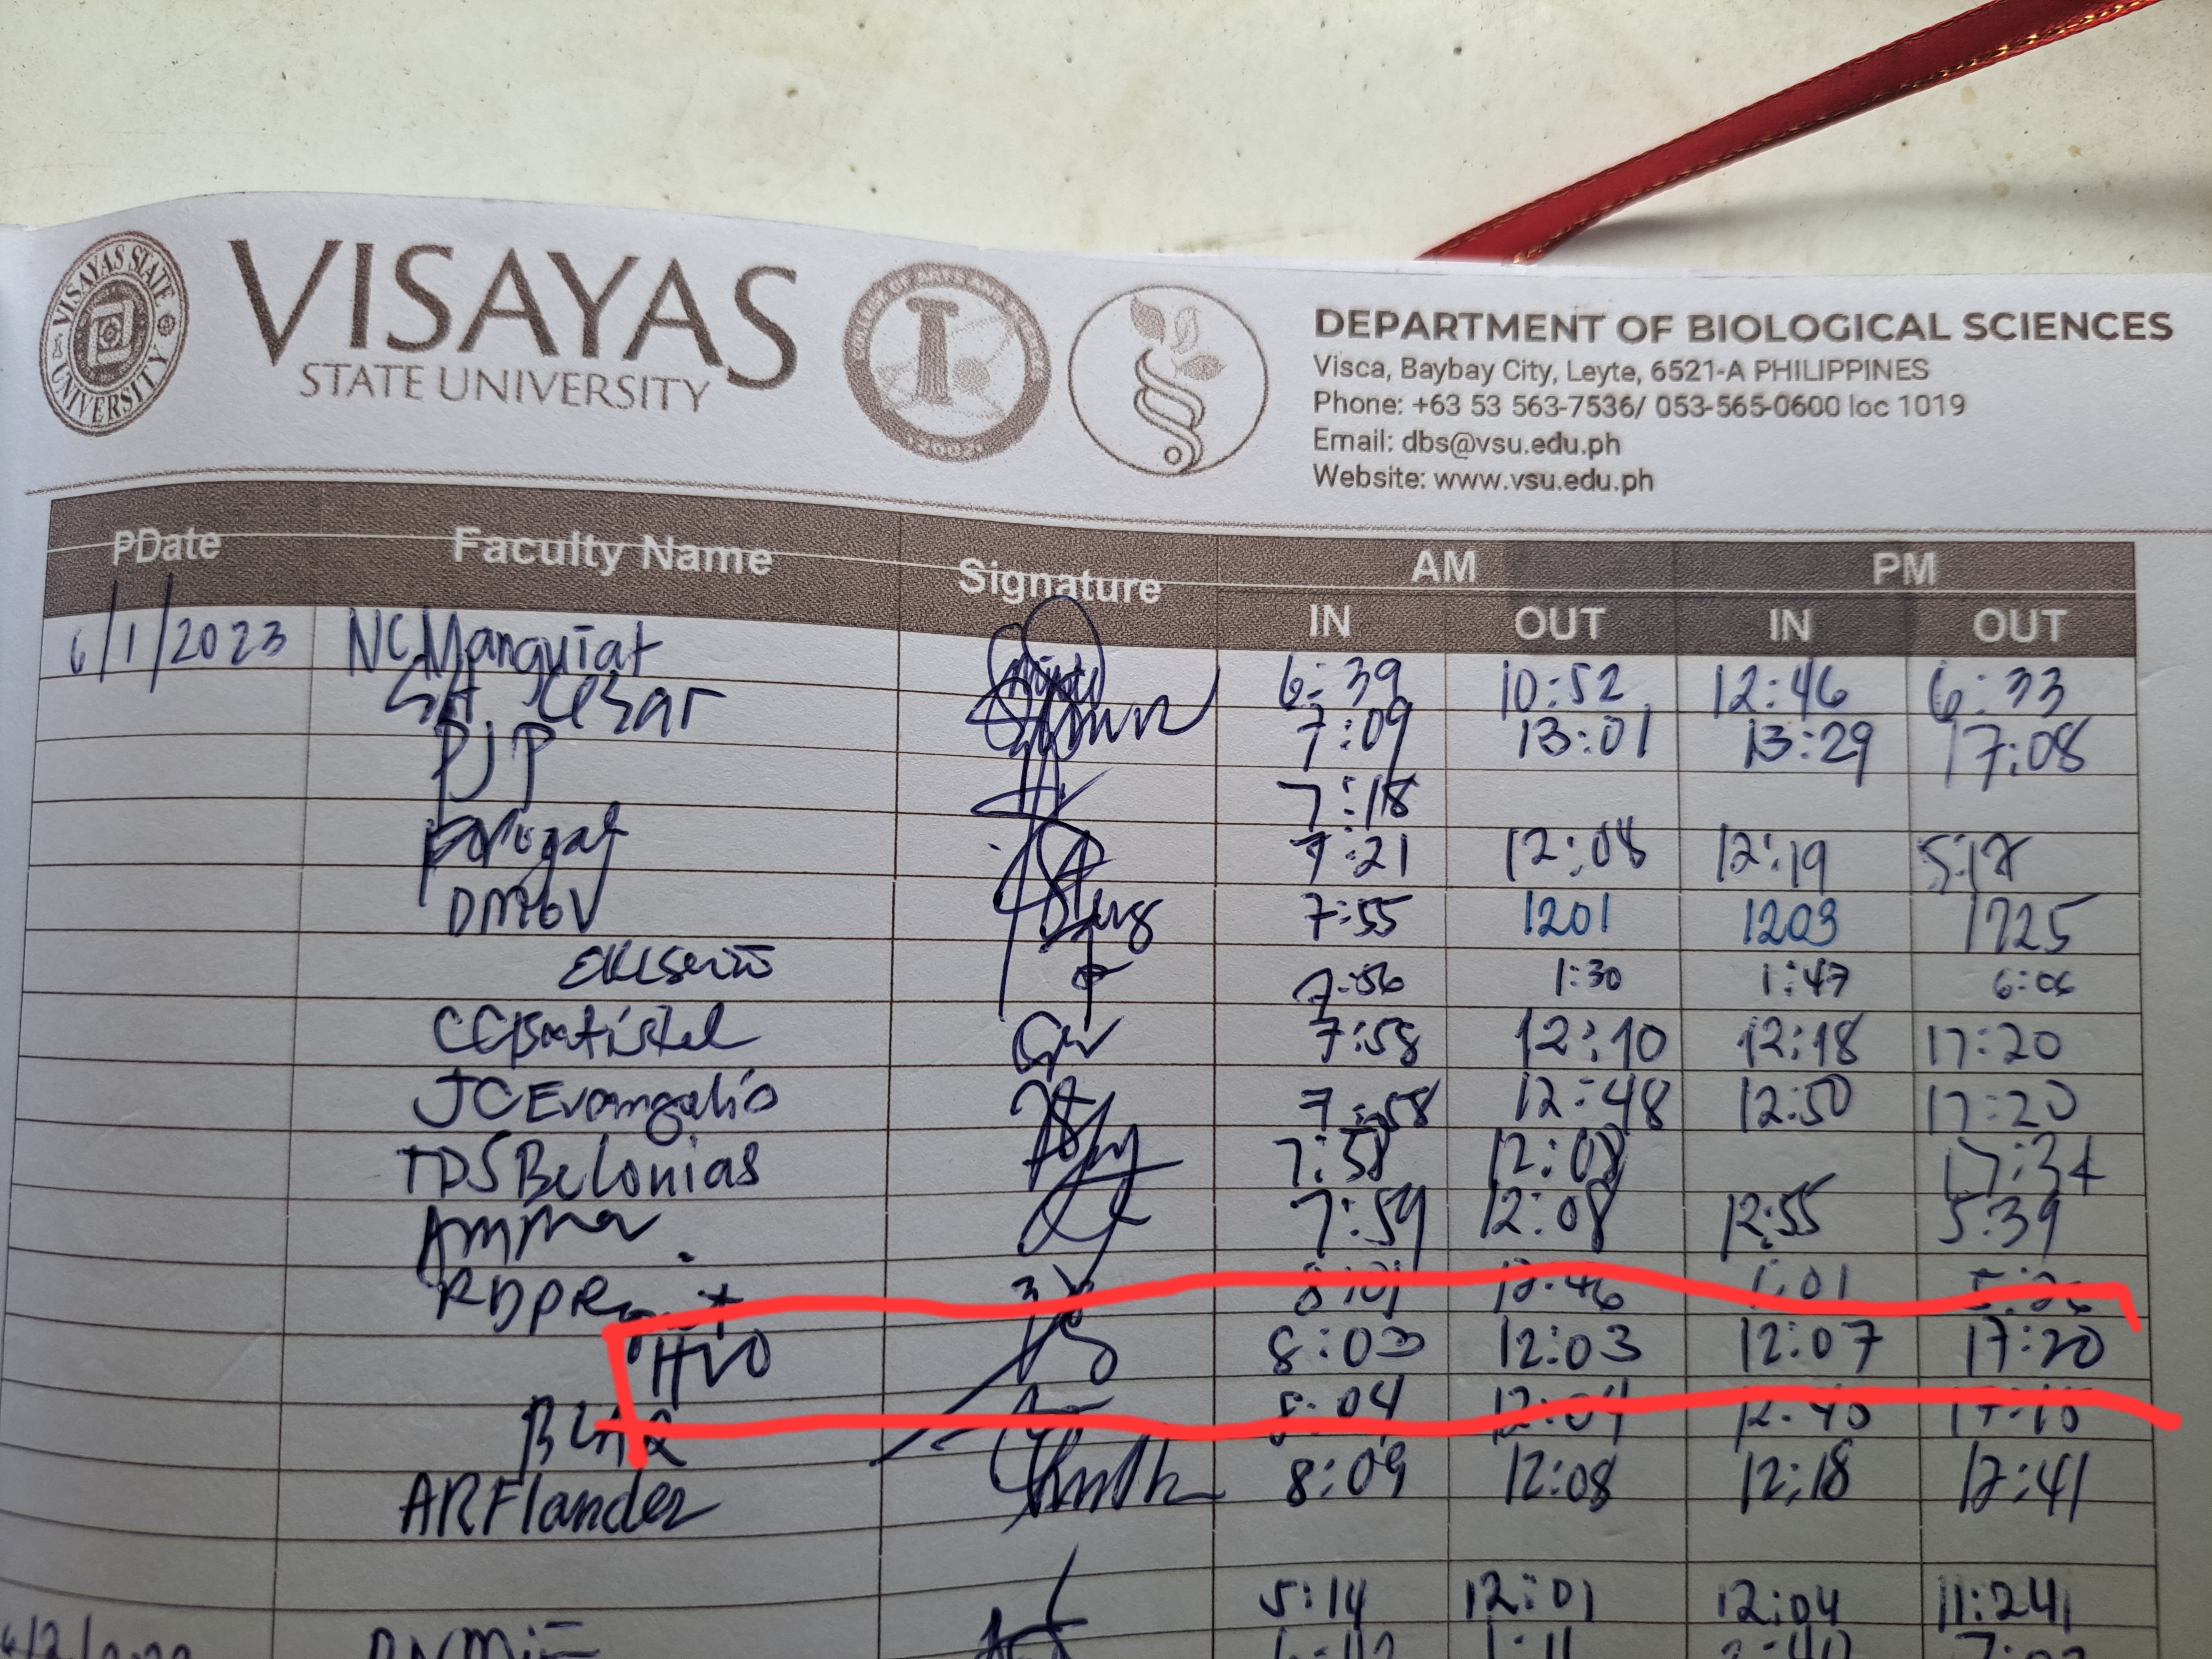 VISAYAS
STATE UNIVERSITY
VISAYAS STATE UNIVERSITY
DEPARTMENT OF BIOLOGICAL SCIENCES
Visca, Baybay City, Leyte, 6521-A PHILIPPINES
Phone: +63 53 563-7536/ 053-565-0600 loc 1019
Email: dbs@vsu.edu.ph
Website: www.vsu.edu.ph
PDate Faculty Name Signature AM PM
IN OUT IN OUT
6/1/2023 NCManguiat 6:39 10:52 12:46 6:33
Cesar 7:09 13:01 13:29 17:08
PJP 7:18
7:21 12:08 12:19 5:17
7:55 1201 1203 1725
7:56 1:30 1:47 6:06
7:58 12:10 12:18 17:20
JCEvangelio 7:58 12:48 12:50 17:20
TDSBelonias 7:58 12:08 17:34
7:59 12:08 12:55 5:39
8:01 12:46 1:01
HVO 8:03 12:03 12:07 17:20
8:04 12:04 12:40
ARFlandez 8:09 12:08 12:18 17:41
5:14 12:01 12:04 11:24